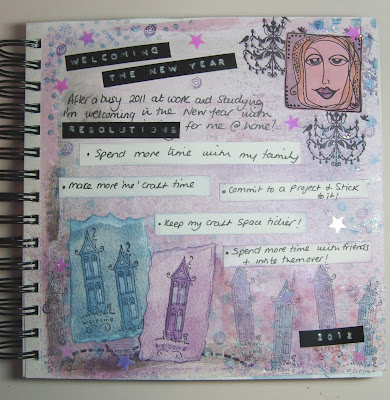 WELCOMING
THE NEW YEAR
After a busy 2011 at work and studying
I'm welcoming in the New Year with
RESOLUTIONS for me @ home!
• Spend more time with my family
• Make more 'me' craft time
• Commit to a project + Stick
to it!
• Keep my craft space tidier!
• Spend more time with friends
+ invite them over!
welcome
welcome
2012